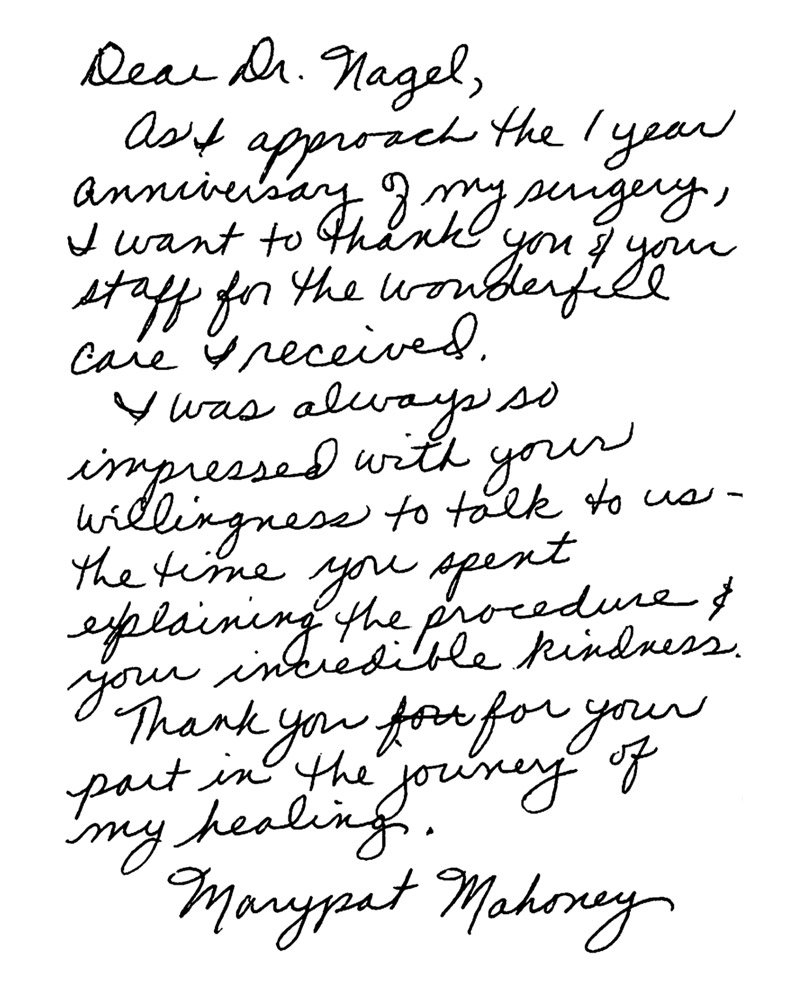 Dear Dr. Nagel,
As I approach the 1 year
anniversary of my surgery,
I want to thank you & your
staff for the wonderful
care I received.
I was always so
impressed with your
willingness to talk to us -
the time you spent
explaining the procedure &
your incredible kindness.
Thank you for your
part in the journey of
my healing.
Marypat Mahoney